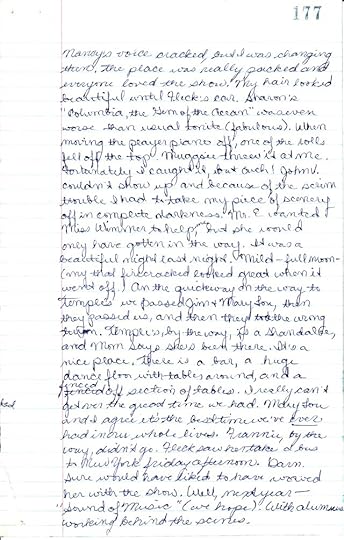 177
Nancy's voice cracked, but I was changing
then. The place was really packed and
everyone loved the show. My hair looked
beautiful until Fleck's car. Sharon's
"Columbia, the Gem of the Ocean" was even
worse than usual tonite (fabulous). When
moving the prayer piano off, one of the rolls
fell off the top. Maggie threw it at me.
Fortunately I caught it, but ouch! John V.
couldn't show up and because of the scrim
trouble I had to take my piece of scenery
off in complete darkness. Mr. E. wanted
Miss Wimmer to help, but she would
only have gotten in the way. It was a
beautiful night last night. Mild - full moon -
(my that firecracker looked great when it
went off!) On the quickway on the way to
Temples we passed Jim & Mary Lou, then
they passed us, and then they took the wrong
turn. Temple's, by the way, is a
and Mom says she's been there. It's a
nice place. There is a bar, a huge
dance floor with tables around, and a
fenced
off section of tables. I really can't
get over the good time we had. Mary Lou
and I agree it's the best time we've ever
had in our whole lives. Frannie, by the
way, didn't go. Fleck saw her take a bus
to New York Friday afternoon. Darn.
Sure would have liked to have wowed
her with the show. Well, next year -
"Sound of Music" (we hope). With alumnus
working behind the scenes.